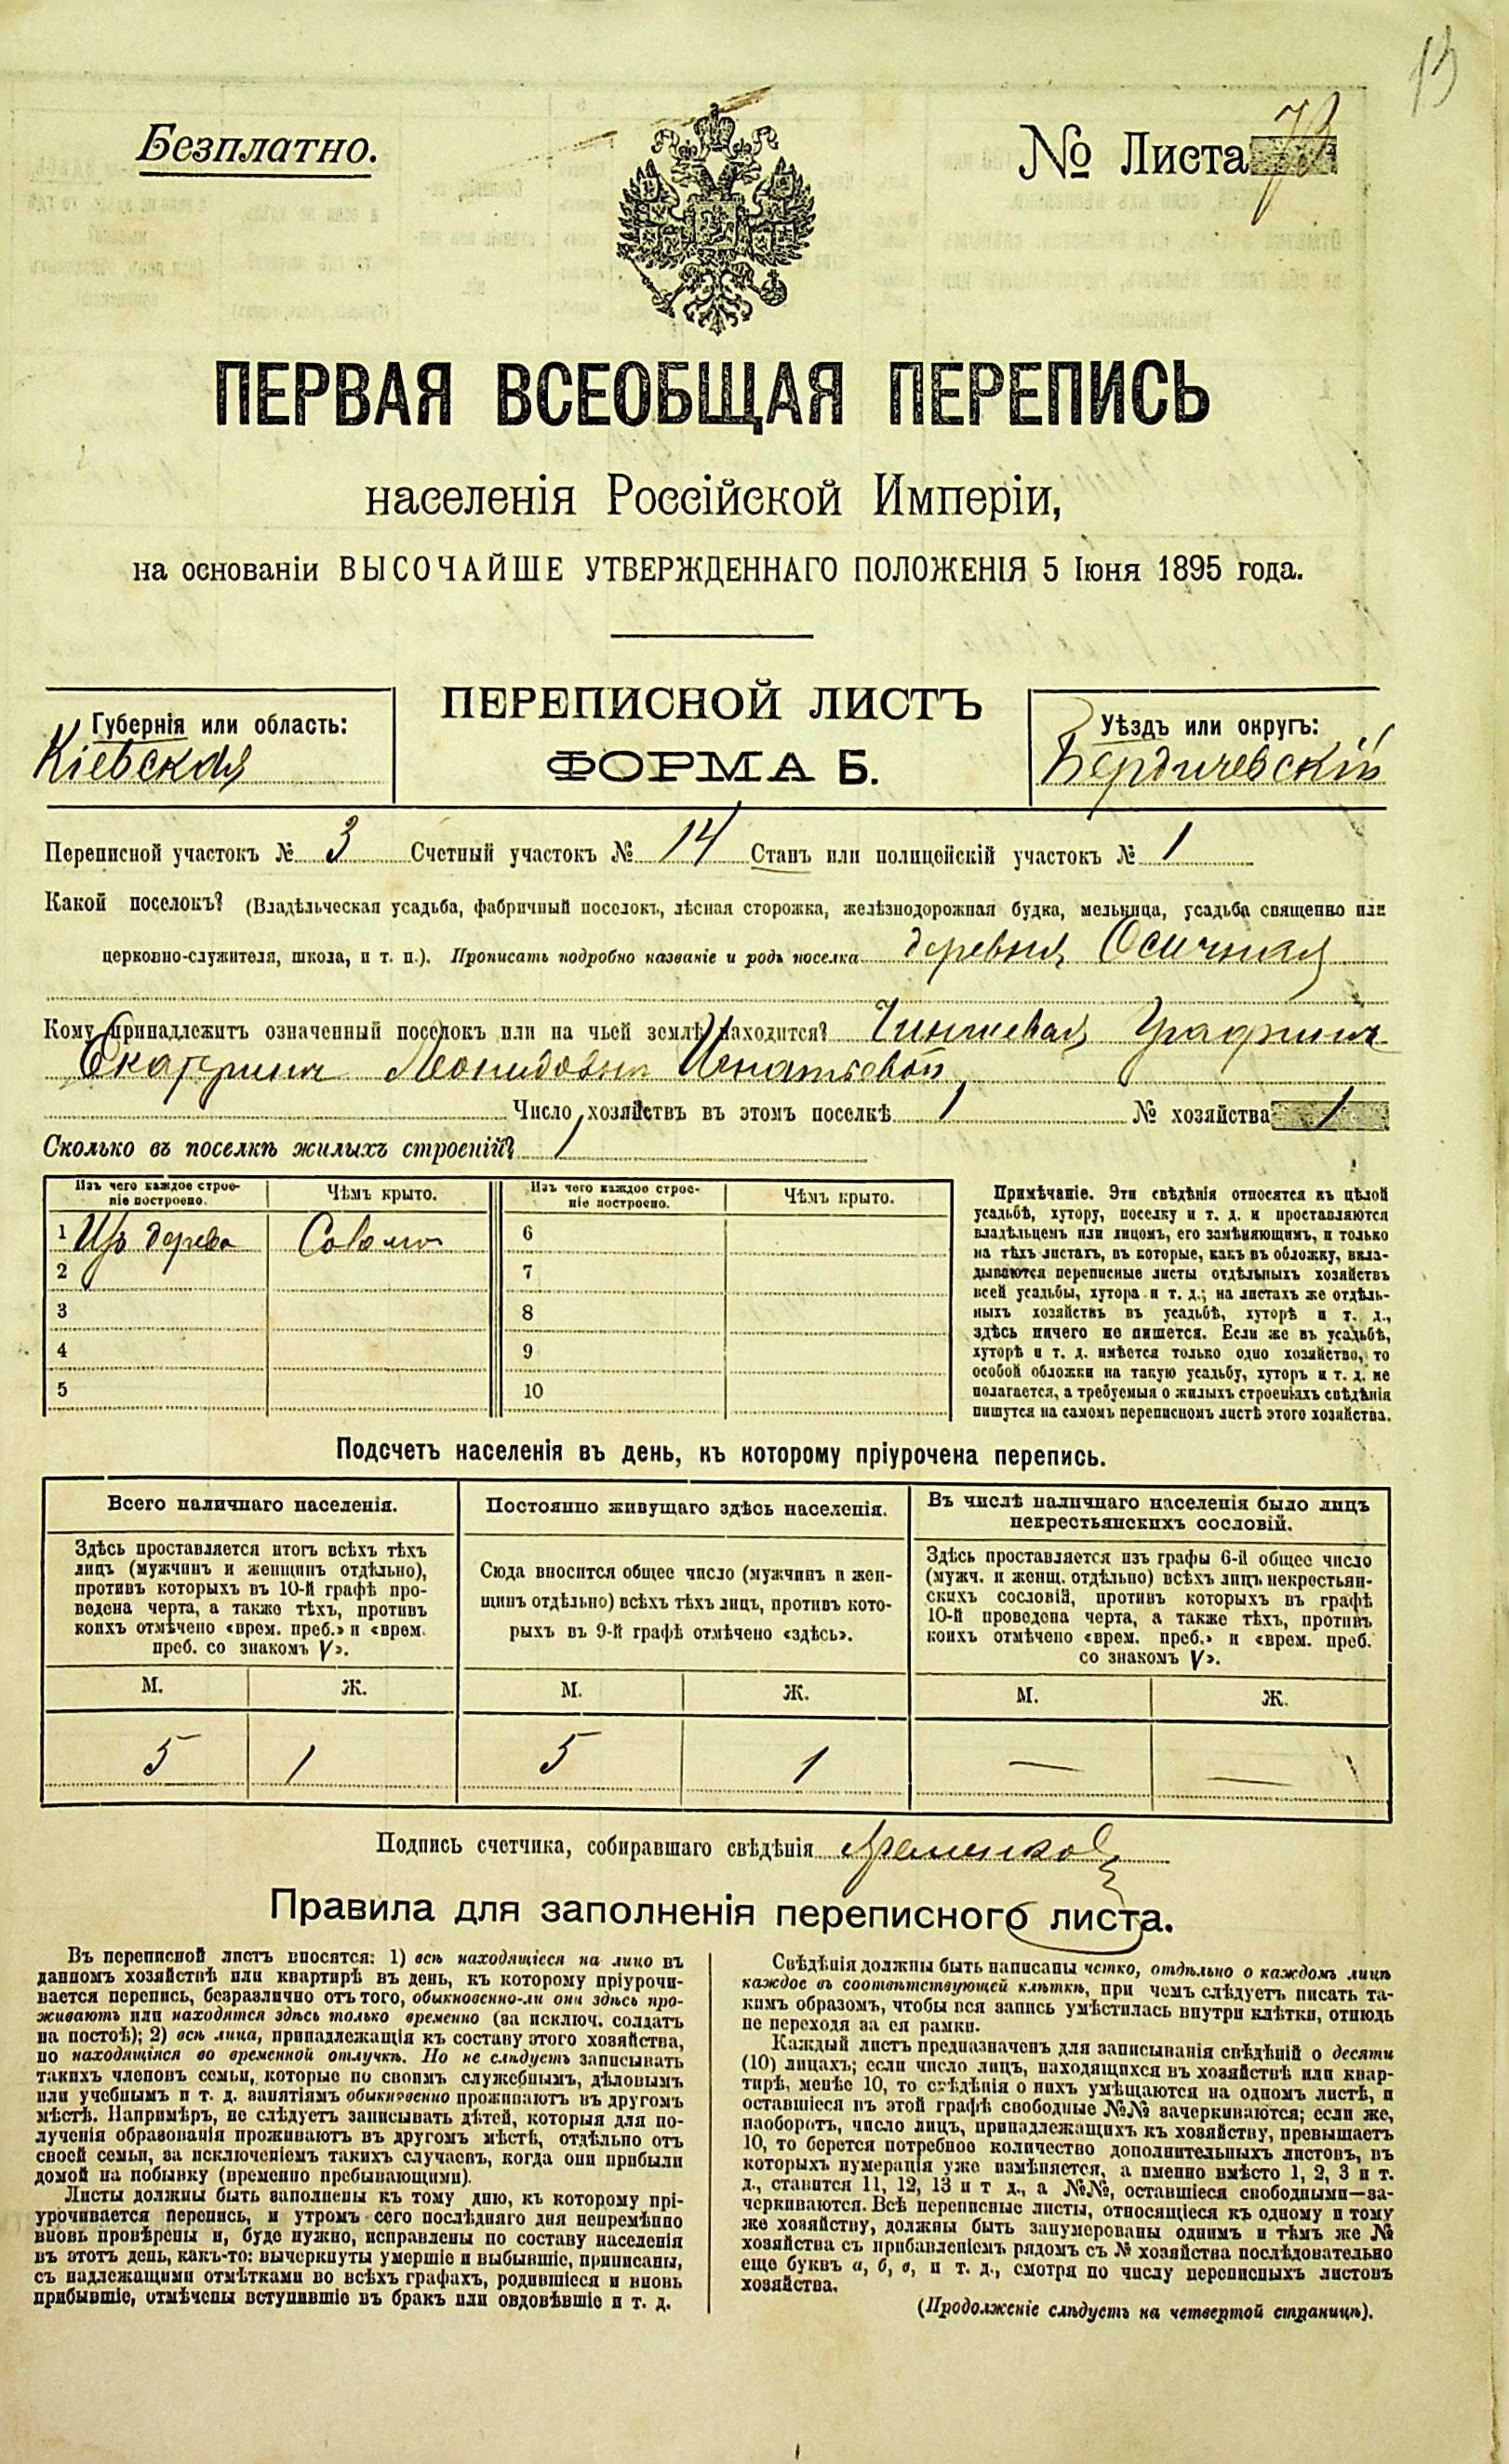 Безплатно.
№ Листа
ПЕРВАЯ ВСЕОБЩАЯ ПЕРЕПИСЬ
населенія Россійской Имперіи,
на основаніи ВЫСОЧАЙШЕ УТВЕРЖДЕННАГО ПОЛОЖЕНІЯ 5 Іюня 1895 года.
Губернія или область:
Кіевская
ПЕРЕПИСНОЙ ЛИСТЪ
ФОРМА Б.
Уѣздъ или округъ:
Бердичевскій
Переписной участокъ № 3 Счетный участокъ № 14 Станъ или полицейскій участокъ № 1
Какой поселокъ? (Владѣльческая усадьба, фабричный поселокъ, лѣсная сторожка, желѣзнодорожная будка, мельница, усадьба священно или
церковно-служителя, школа, и т. п.). Прописать подробно названіе и родъ поселка деревня Осичная
Кому принадлежитъ означенный поселокъ или на чьей землѣ находится? Чиншевая Графини
Екатерины Леонидовны Игнатьевой
Число хозяйствъ въ этомъ поселкѣ 1 № хозяйства 1
Сколько въ поселкѣ жилыхъ строеній? 1
Изъ чего каждое строе-
ніе построено.
Чѣмъ крыто.
Изъ чего каждое строе-
ніе построено.
Чѣмъ крыто.
1 Изъ дерева Солома 6
2 7
3 8
4 9
5 10
Примѣчаніе. Эти свѣдѣнія относятся къ цѣлой
усадьбѣ, хутору, поселку и т. д. и проставляются
владѣльцемъ или лицомъ, его замѣняющимъ, и только
на тѣхъ листахъ, въ которые, какъ въ обложку, вкла-
дываются переписные листы отдѣльныхъ хозяйствъ
всей усадьбы, хутора и т. д.; на листахъ же отдѣль-
ныхъ хозяйствъ въ усадьбѣ, хуторѣ и т. д.,
здѣсь ничего не пишется. Если же въ усадьбѣ,
хуторѣ и т. д. имѣется только одно хозяйство, то
особой обложки на такую усадьбу, хуторъ и т. д. не
полагается, а требуемыя о жилыхъ строеніяхъ свѣдѣнія
пишутся на самомъ переписномъ листѣ этого хозяйства.
Подсчетъ населенія въ день, къ которому пріурочена перепись.
Всего наличнаго населенія.
Здѣсь проставляется итогъ всѣхъ тѣхъ
лицъ (мужчинъ и женщинъ отдѣльно),
противъ которыхъ въ 10-й графѣ про-
ведена черта, а также тѣхъ, противъ
коихъ отмѣчено «врем. преб.» и «врем.
преб. со знакомъ V».
Постоянно живущаго здѣсь населенія.
Сюда вносится общее число (мужчинъ и жен-
щинъ отдѣльно) всѣхъ тѣхъ лицъ, противъ кото-
рыхъ въ 9-й графѣ отмѣчено «здѣсь».
Въ числѣ наличнаго населенія было лицъ
некрестьянскихъ сословій.
Здѣсь проставляется изъ графы 6-й общее число
(мужч. и женщ. отдѣльно) всѣхъ лицъ некрестьян-
скихъ сословій, противъ которыхъ въ графѣ
10-й проведена черта, а также тѣхъ, противъ
коихъ отмѣчено «врем. преб.» и «врем. преб.
со знакомъ V».
М. Ж. М. Ж. М. Ж.
5 1 5 1 — —
Подпись счетчика, собиравшаго свѣдѣнія
Правила для заполненія переписного листа.
Въ переписной листъ вносятся: 1) всѣ находящіеся на лицо въ
данномъ хозяйствѣ или квартирѣ въ день, къ которому пріурочи-
вается перепись, безразлично отъ того, обыкновенно-ли они здѣсь про-
живаютъ или находятся здѣсь только временно (за исключ. солдатъ
на постоѣ); 2) всѣ лица, принадлежащія къ составу этого хозяйства,
но находящіяся во временной отлучкѣ. Но не слѣдуетъ записывать
такихъ членовъ семьи, которые по своимъ служебнымъ, дѣловымъ
или учебнымъ и т. д. занятіямъ обыкновенно проживаютъ въ другомъ
мѣстѣ. Напримѣръ, не слѣдуетъ записывать дѣтей, которыя для по-
лученія образованія проживаютъ въ другомъ мѣстѣ, отдѣльно отъ
своей семьи, за исключеніемъ такихъ случаевъ, когда они прибыли
домой на побывку (временно пребывающими).
Листы должны быть заполнены къ тому дню, къ которому прі-
урочивается перепись, и утромъ сего послѣдняго дня непремѣнно
вновь провѣрены и, буде нужно, исправлены по составу населенія
въ этотъ день, какъ-то: вычеркнуты умершіе и выбывшіе, приписаны,
съ надлежащими отмѣтками во всѣхъ графахъ, родившіеся и вновь
прибывшіе, отмѣчены вступившіе въ бракъ или овдовѣвшіе и т. д.
Свѣдѣнія должны быть написаны четко, отдѣльно о каждомъ лицѣ
каждое въ соотвѣтствующей клѣткѣ, при чемъ слѣдуетъ писать та-
кимъ образомъ, чтобы вся запись умѣстилась внутри клѣтки, отнюдь
не переходя за ея рамки.
Каждый листъ предназначенъ для записыванія свѣдѣній о десяти
(10) лицахъ; если число лицъ, находящихся въ хозяйствѣ или квар-
тирѣ, менѣе 10, то свѣдѣнія о нихъ умѣщаются на одномъ листѣ, и
оставшіеся въ этой графѣ свободные №№ зачеркиваются; если же,
наоборотъ, число лицъ, принадлежащихъ къ хозяйству, превышаетъ
10, то берется потребное количество дополнительныхъ листовъ, въ
которыхъ нумерація уже измѣняется, а именно вмѣсто 1, 2, 3 и т.
д., ставится 11, 12, 13 и т д., а №№, оставшіеся свободными—за-
черкиваются. Всѣ переписные листы, относящіеся къ одному и тому
же хозяйству, должны быть занумерованы однимъ и тѣмъ же №
хозяйства съ прибавленіемъ рядомъ съ № хозяйства послѣдовательно
еще буквъ а, б, в, и т. д., смотря по числу переписныхъ листовъ
хозяйства.
(Продолженіе слѣдуетъ на четвертой страницѣ).